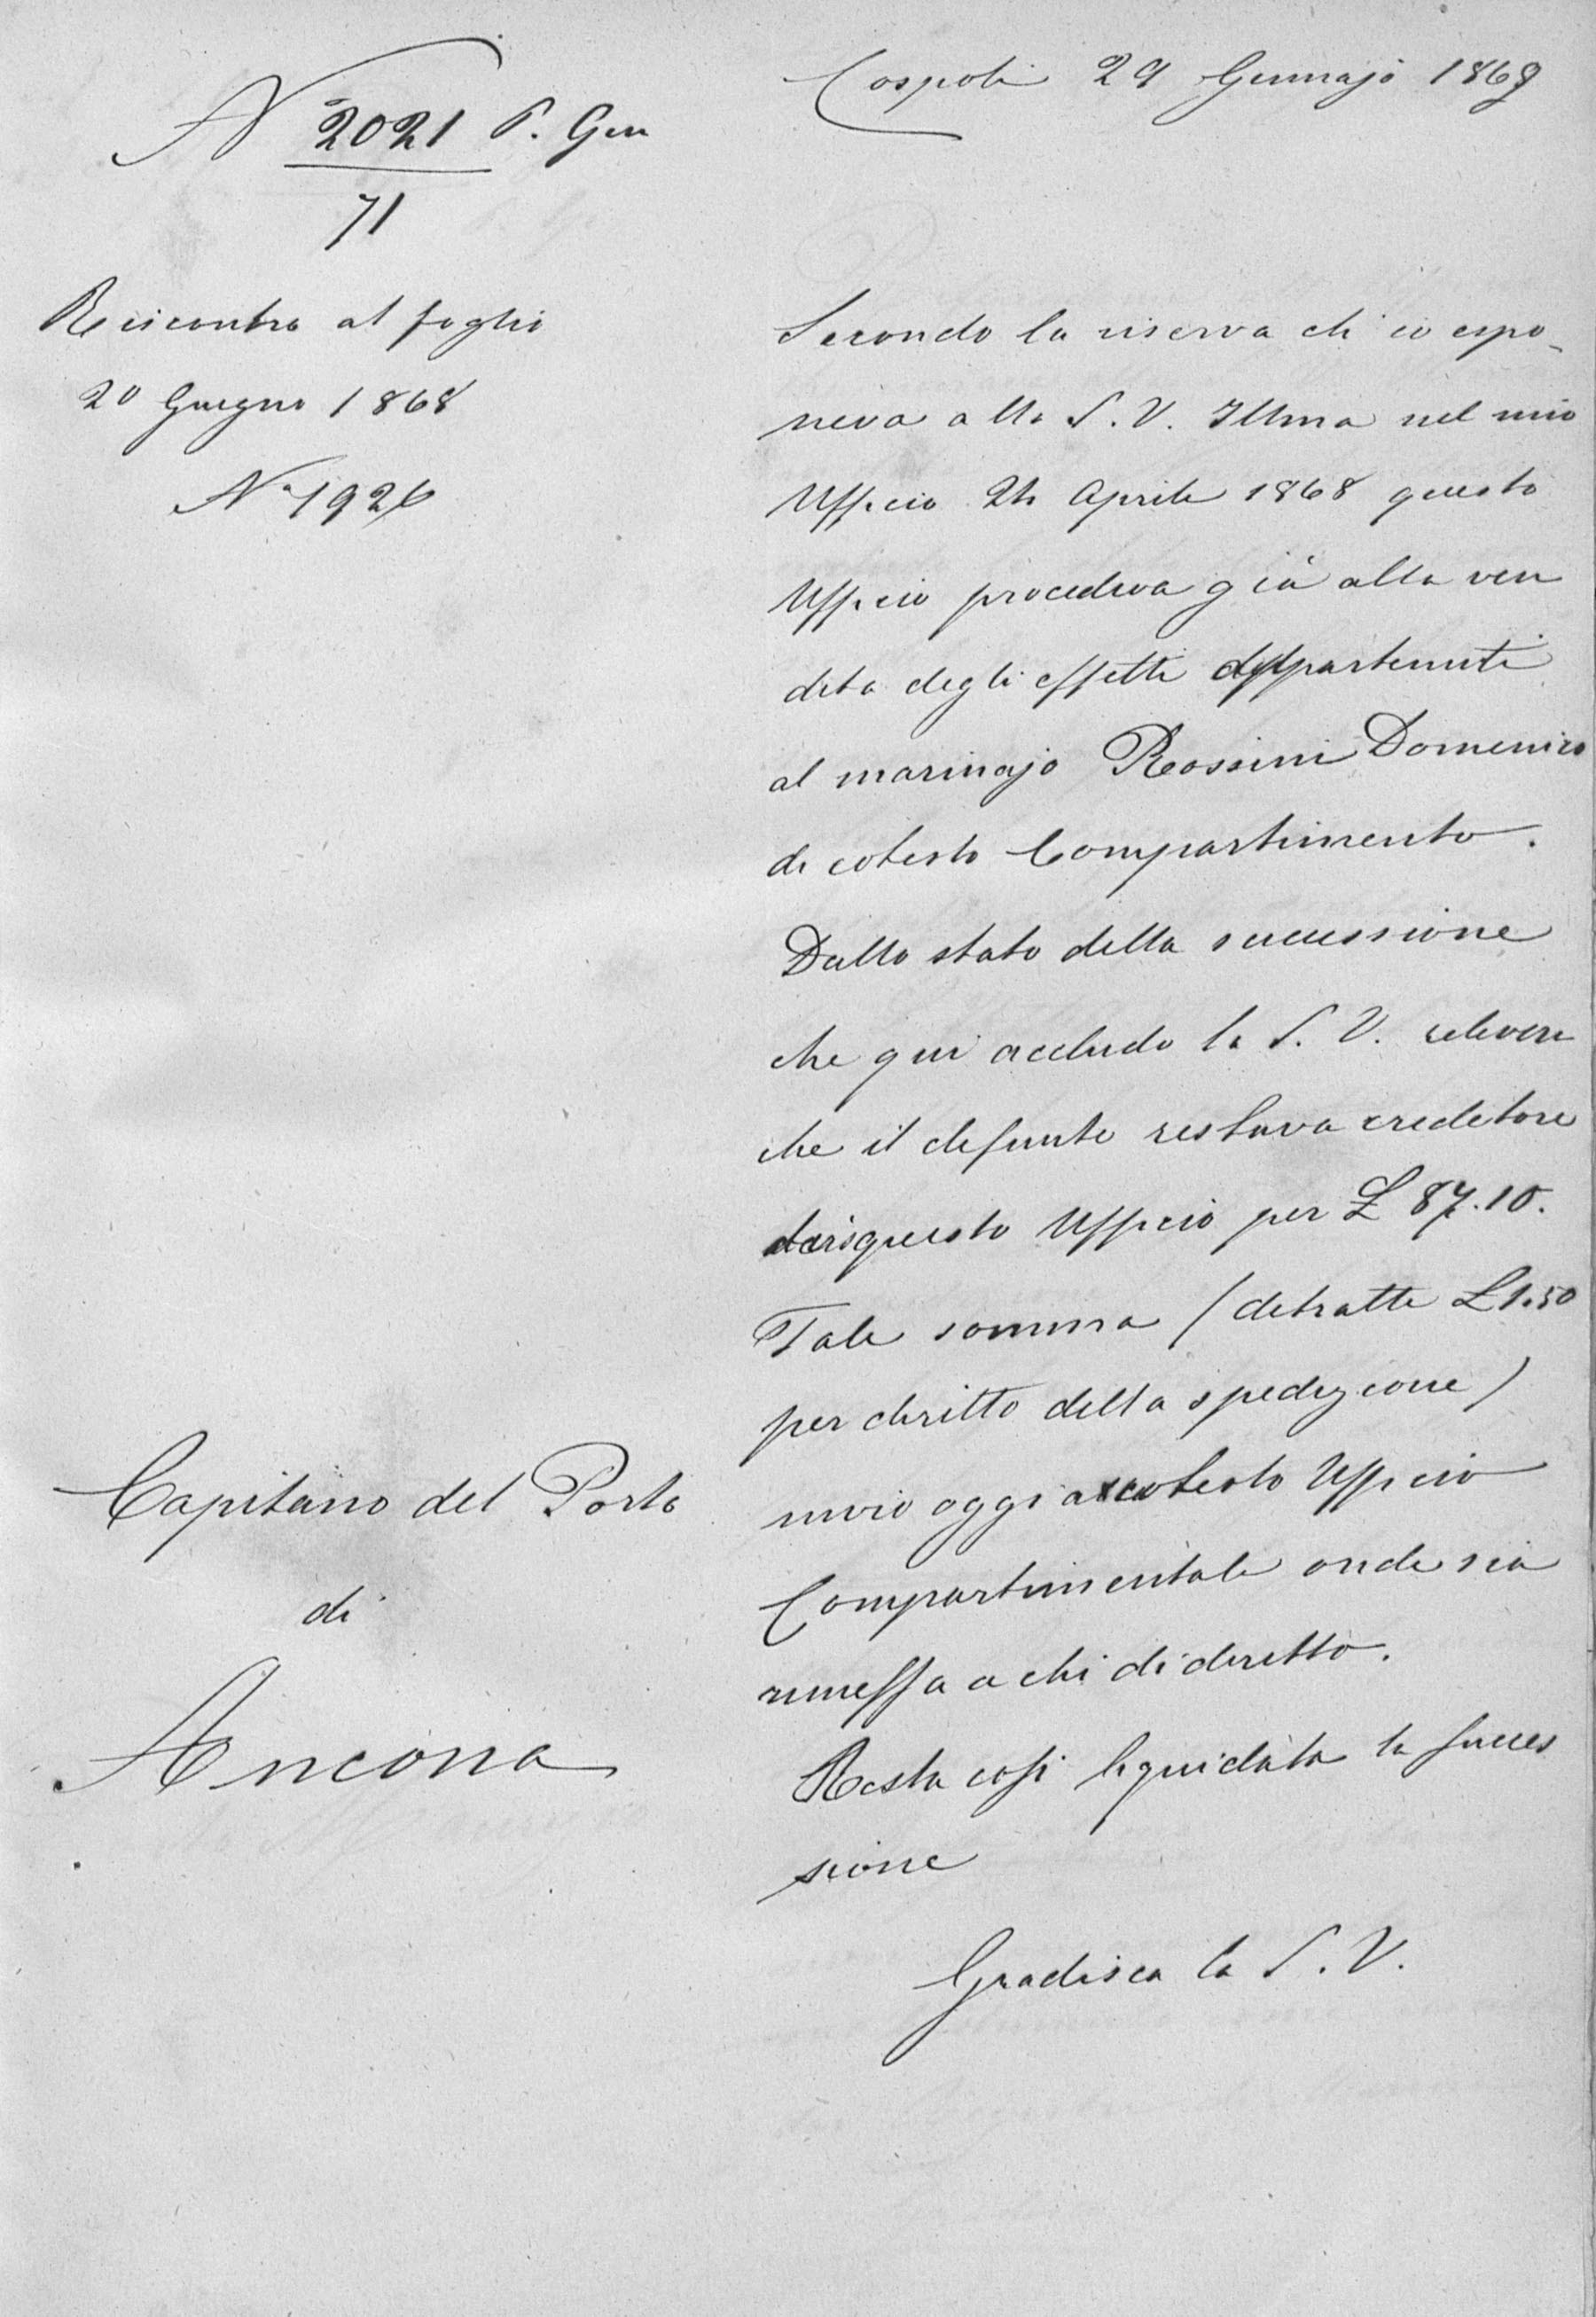 N 2021 P. Gen
71
Riscontro al foglio
20 Giugno 1868
N° 1926
Capitano del Porto
di
Ancona
Cospoli 29 Gennajo 1869
Secondo la riserva ch'io espo-
neva alla S. V. Illma nel mio
Ufficio 24 Aprile 1868 questo
Ufficio procedeva già alla ven
dita degli effetti appartenuti
al marinajo Rossini Domenico
di cotesto Compartimento.
Dallo stato della successione
che qui accludo la S. V. rileverà
che il defunto restava creditore
questo Ufficio per £ 87.10.
Tale somma (detratte £ 1.50
per diritto della spedizione)
invio oggi a cotesto Ufficio
Compartimentale onde sia
rimessa a chi di diritto.
Resta così liquidata la succes
sione
Gradisca la S. V.